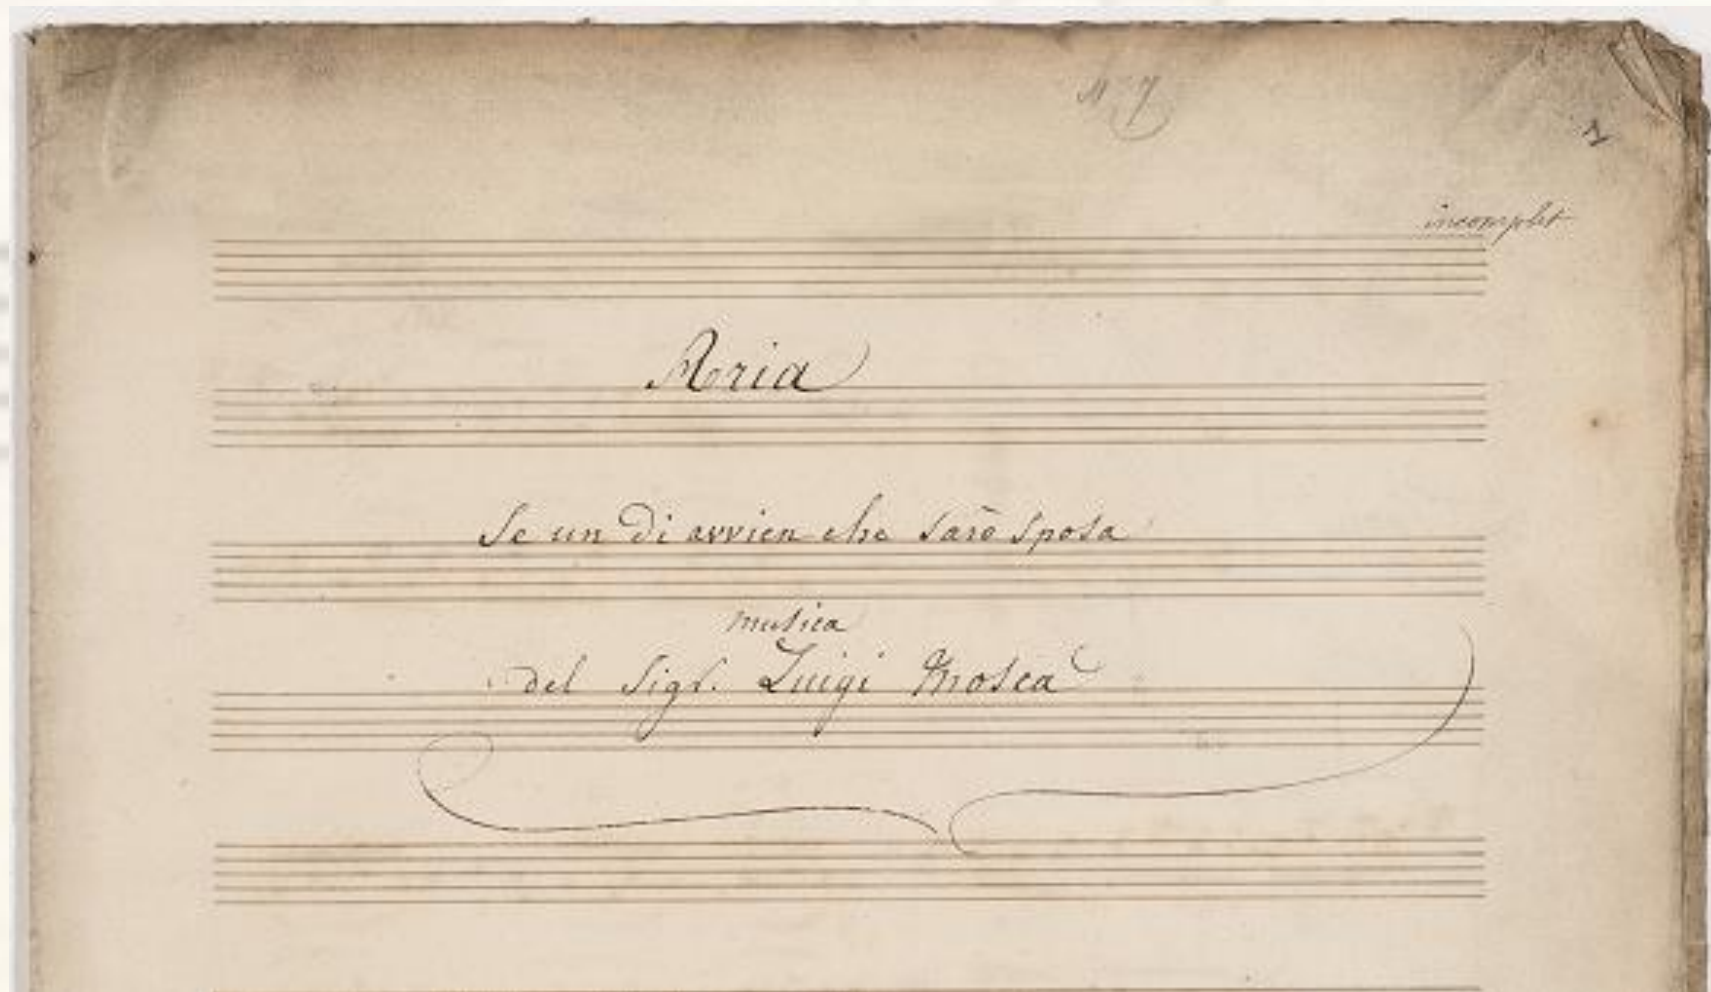 N 7
1
incomplet
Aria
Se un Di avvien che sarò sposa
musica
del Sigr. Luigi Mosca